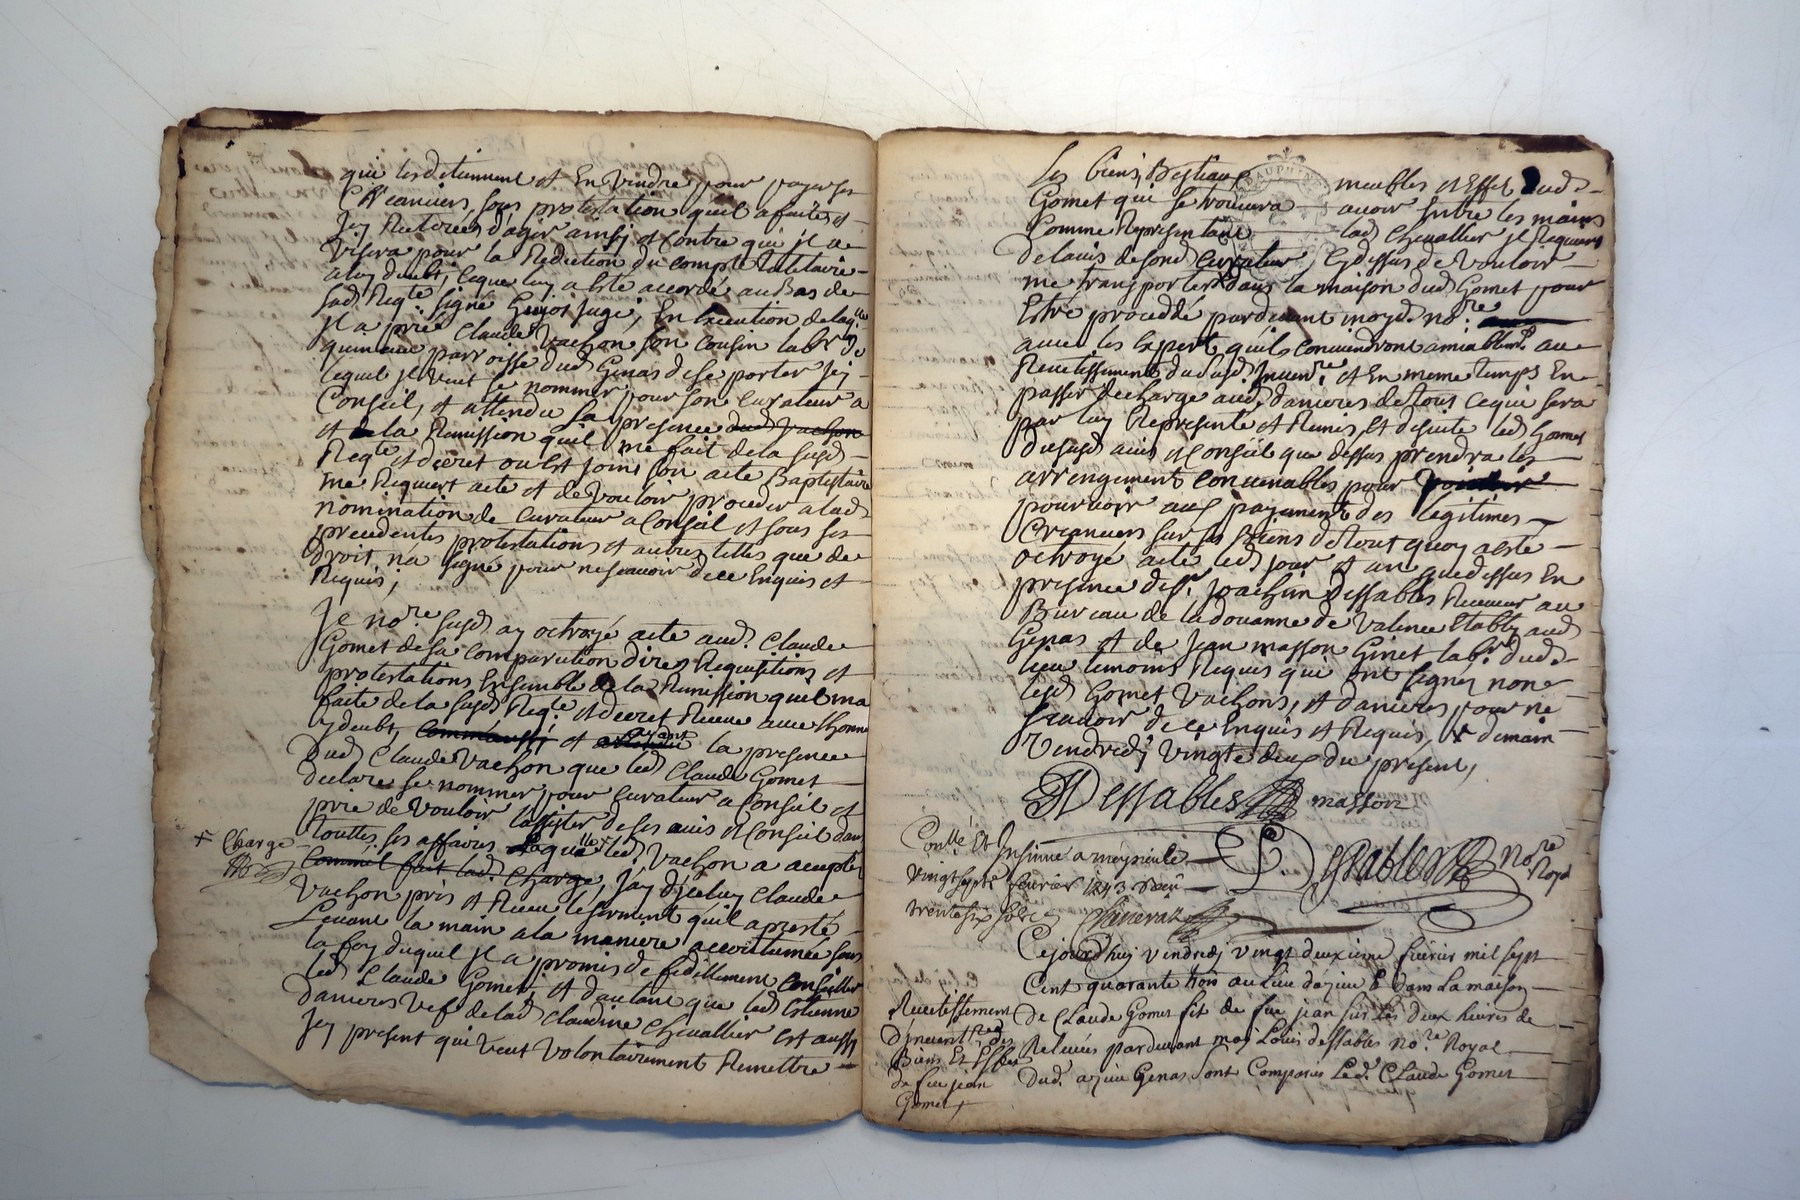 qui les detiennent et En Vendre pour payer ses
Creanciers, sous protestation quil a faite et
Jcy Reiterées d'agir ainsy et contre qui jl a
Visera pour la Reduction du compte tutelaire
a luy deubt, ce que luy a este accordé au Bas de
sad. Reqte signé Guyot juge, En Execution de laq.lle
jl a prié Claude Vachon son Cousin lab.r de
parroisse dud Genas de se porter Jcy
lequel jl veut se nommer pour son curateur a
Conseil, et attendu sa presence dud Vachon
et de la Remission quil me fait de la susd
Reqte et decret ou Est joint son acte Baptistaire
me Requiert acte et de Vouloir proceder a lad
nomination de Curateur a Conseil et sous ses
precedentes protestations et autres telles que de
droit, na signé pour ne scavoir de ce Enquis et
Requis;
Je no.re susd ay octroyé acte aud. Claude
Gomet de sa comparution dires Requisitions et
protestations Ensemble de la Remission quil ma
faite de la susd Reqte. et decret Receue avec lhonneur
y deubt, et ayant la presence
Dud Claude Vachon que led Claude Gomet
declare se nommer pour curateur a Conseil et
prie de Vouloir lassister de ses avis et Conseil dans
touttes ses affaires laquelle led. Vachon a accepté
+ Charge
Comme fait lad. Charge, j'ay d jceluy Claude
Vachon pris et Receu le serment quil a presté
Levant la main a la maniere accoutumée sous
la foy duquel jl a promis de fidellement conseiller
led Claude Gomet, et dautant que led Estienne
danieres Vef de lad Claudine Chevallier est aussy
Jcy present qui veut Volontairement Remettre
Les biens, Bestiaux meubles et Effet dud
Gomet qui se trouvera avoir Entre les mains
Comme Representant lad Chevallier jl Requiert
de lavis de sond Curateur, Cy dessus de Vouloir
me transporter dans la maison dud Gomet pour
Estre proceddé pardevant moyd. no.re
avec les Expert quils conviendront amiablem.t au
Recetissement du susd. Inven.re et En meme temps En
passer decharge aud. danieres de tous ce qui sera
par luy Representé et Remis, Et desuite led Gomet
du susd avis et Conseil que dessus prendra les
arrengement convenables pour
pourvoir aux payement des legitimes
Creanciers sur ses Biens de tout quoy a esté
octroyé acte led jour et an que dessus En
presence de s.r Joachim Dessables Receveur au
Bureau de la douanne de Valence Etably aud
Genas et de Jean masson Ginet lab.r dud
lieu temoins Requis qui ont signez non
lesd Gomet Vachons, et danieres pour ne
scavoir de ce Enquis et Requis, demain
Vendredy Vingt deux du present,
JDessables masson
Con.llé Et Insinué a meyzieule
Vingt sept fevrier 1743 Reçu
trente six sols
L Dessables no.re Royal
Cejourd'huy Vendredy Vingt deuxieme fevrier mil sept
Cent quarante trois au Lieu d'azieu & Dans La maison
Recetissement
D'inventre des
Biens Et Effets
de feu jean
Gomet,
De Claude Gomet fils de feu jean sur Les deux heures de
Relevées pardevant moy Louis dessables no.re Royal
Dud. azieu Genas sont Comparus Led. Claude Gomet